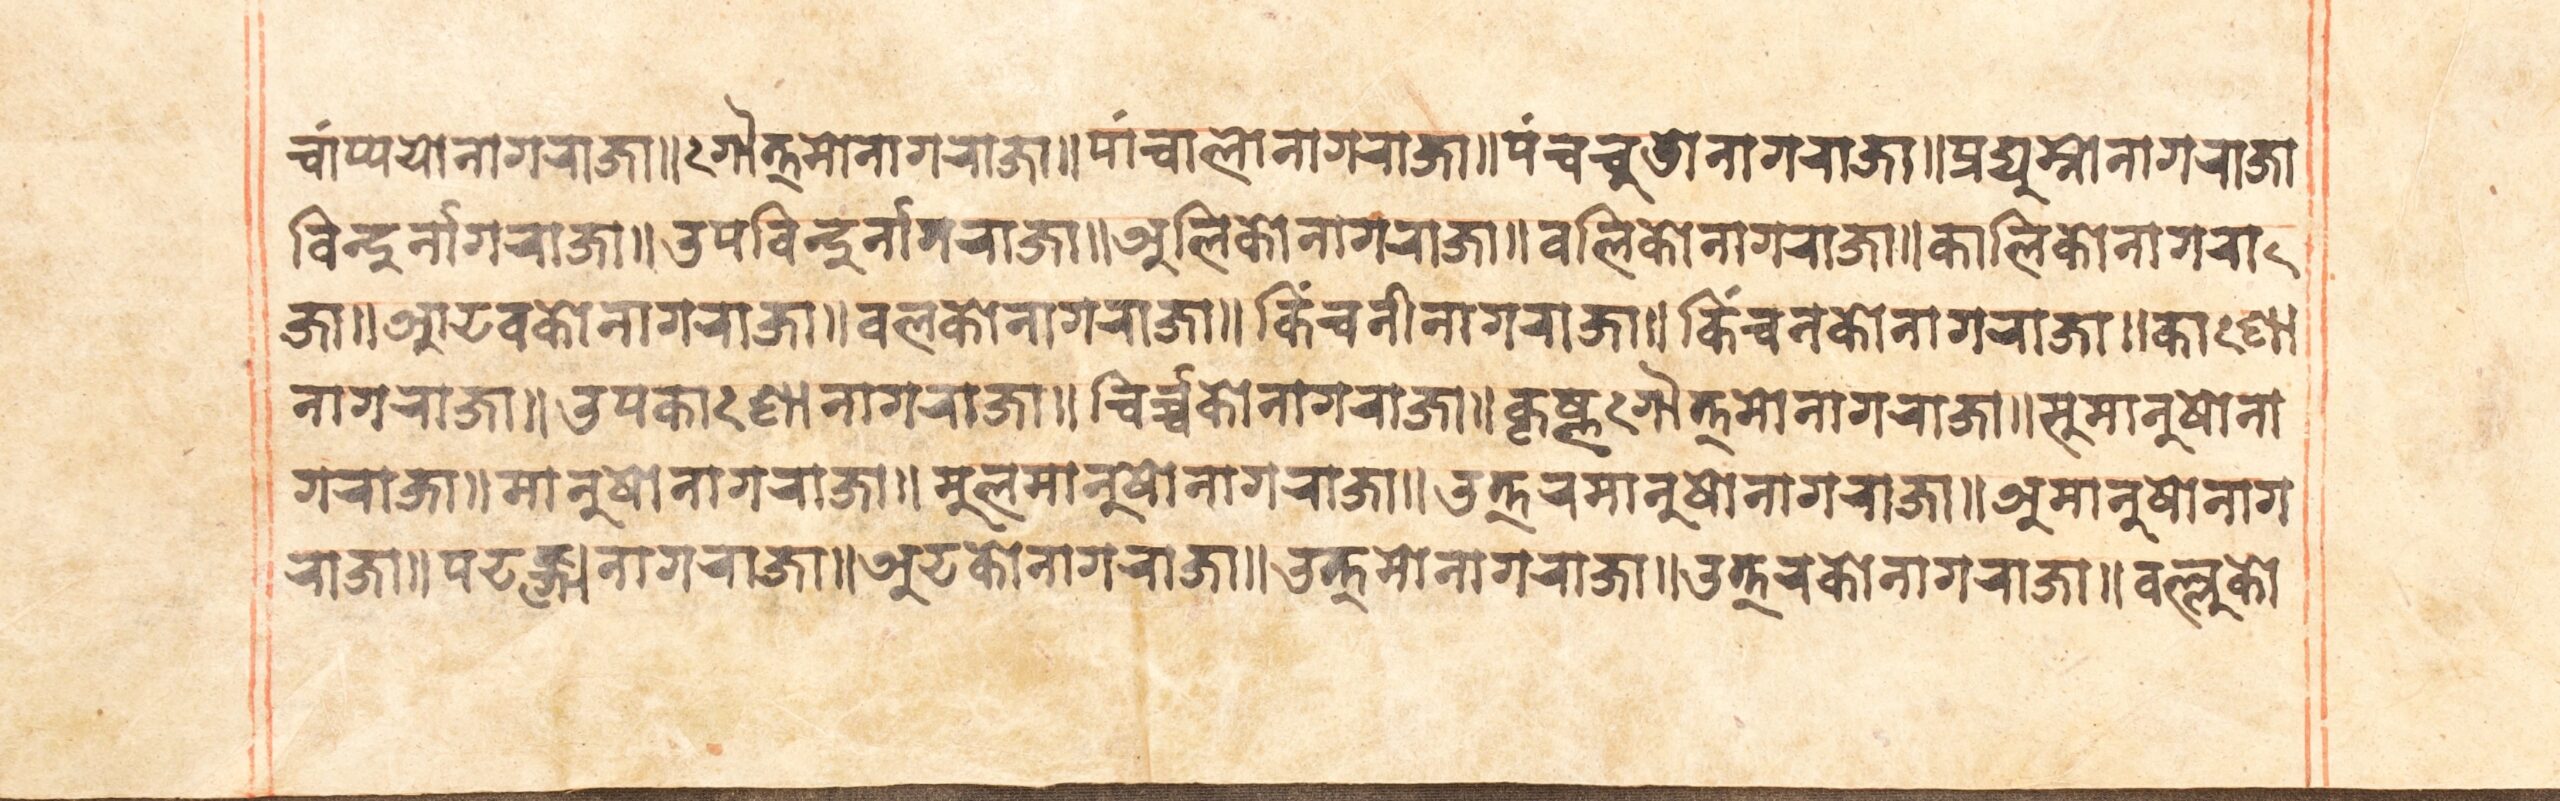 र्चांप्ययोनागराजा॥ःगौत्तमोनागराजा॥पांचालोनागराजा॥पंचचुडोनागराजा॥प्रद्युम्नोनागराजा
विन्दुर्नागराजा॥उपविन्दुर्नागराजा॥अलिकोनागराजा॥वलिकोनागराजा॥कालिकोनागराः
जा॥आटवकोनागराजा॥वलकोनागराजा॥किंचनीनागराजा॥किंचनकोनागराजा॥काःणो
नागराजा॥उपकाःणोनागराजा॥चिर्च्चकोनागराजा॥कृष्णःगौत्तमोनागराजा॥सुमानुषोना
गराजा॥मानुषोनागराजा॥मुलमानुषोनागराजा॥उत्तरमानुषोनागराजा॥अमानुषोनाग
राजा॥नागराजा॥अटकोनागराजा॥उत्तमोनागराजा॥उत्तरकोनागराजा॥वल्लुको